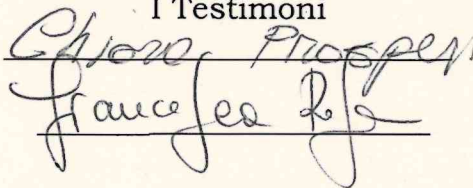 I Testimoni
Chiara Prosperi
Francesca